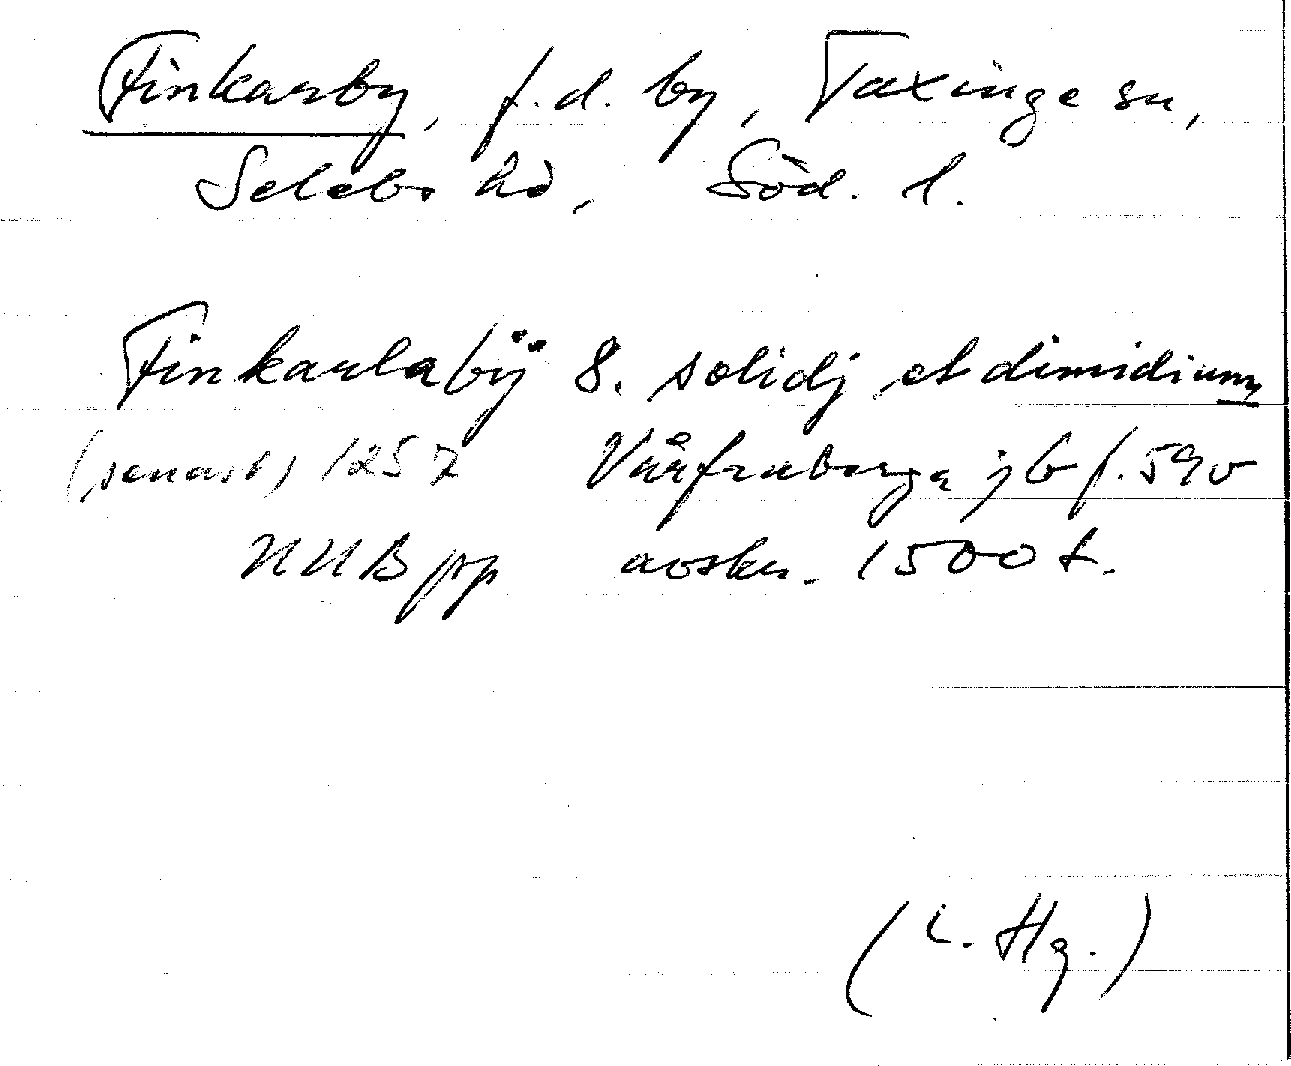 Finkarby, f.d. by, Taxinge sn,
Selebo hd, Söd. l.
Finkarlabÿ 8. solidj et dimidium
(senast) 1257 Vårfruberga jb f. 59v
NUB pp avskr. 1500 t.
(L. Hg.)